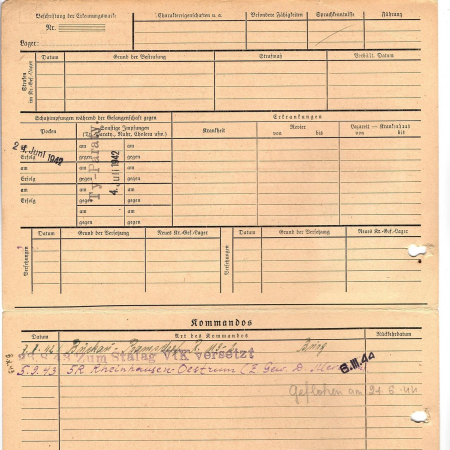 Beschriftung der Erkennungsmarke
Nr.
Lager:
Charaktereigenschaften u. a.
Besondere Fähigkeiten
Sprachkenntnisse
Führung
Strafen im Kr.-Gef.-Lager
Datum
Grund der Bestrafung
Strafmaß
Verbüßt, Datum
Schutzimpfungen während der Gefangenschaft gegen
Erkrankungen
Pocken
Sonstige Impfungen
(Ty. Paraty., Ruhr, Cholera usw.)
Krankheit
Revier
von bis
Lazarett — Krankenhaus
von bis
Juni 1942
am
Erfolg
am
Erfolg
am
Erfolg
am
Erfolg
am
gegen
am
gegen
am
gegen
am
gegen
am
gegen
am
gegen
Ty-Paraty
4. Juli 1942
Versetzungen
Datum
Grund der Versetzung
Neues Kr.-Gef.-Lager
Versetzungen
Datum
Grund der Versetzung
Neues Kr.-Gef.-Lager
Kommandos
Datum
Art des Kommandos
Rückkehrdatum
Zum Stalag VI K versetzt
5.9.43 SR Rheinhausen-Oestrum
8. III. 44
Geflohen am 21.6.44